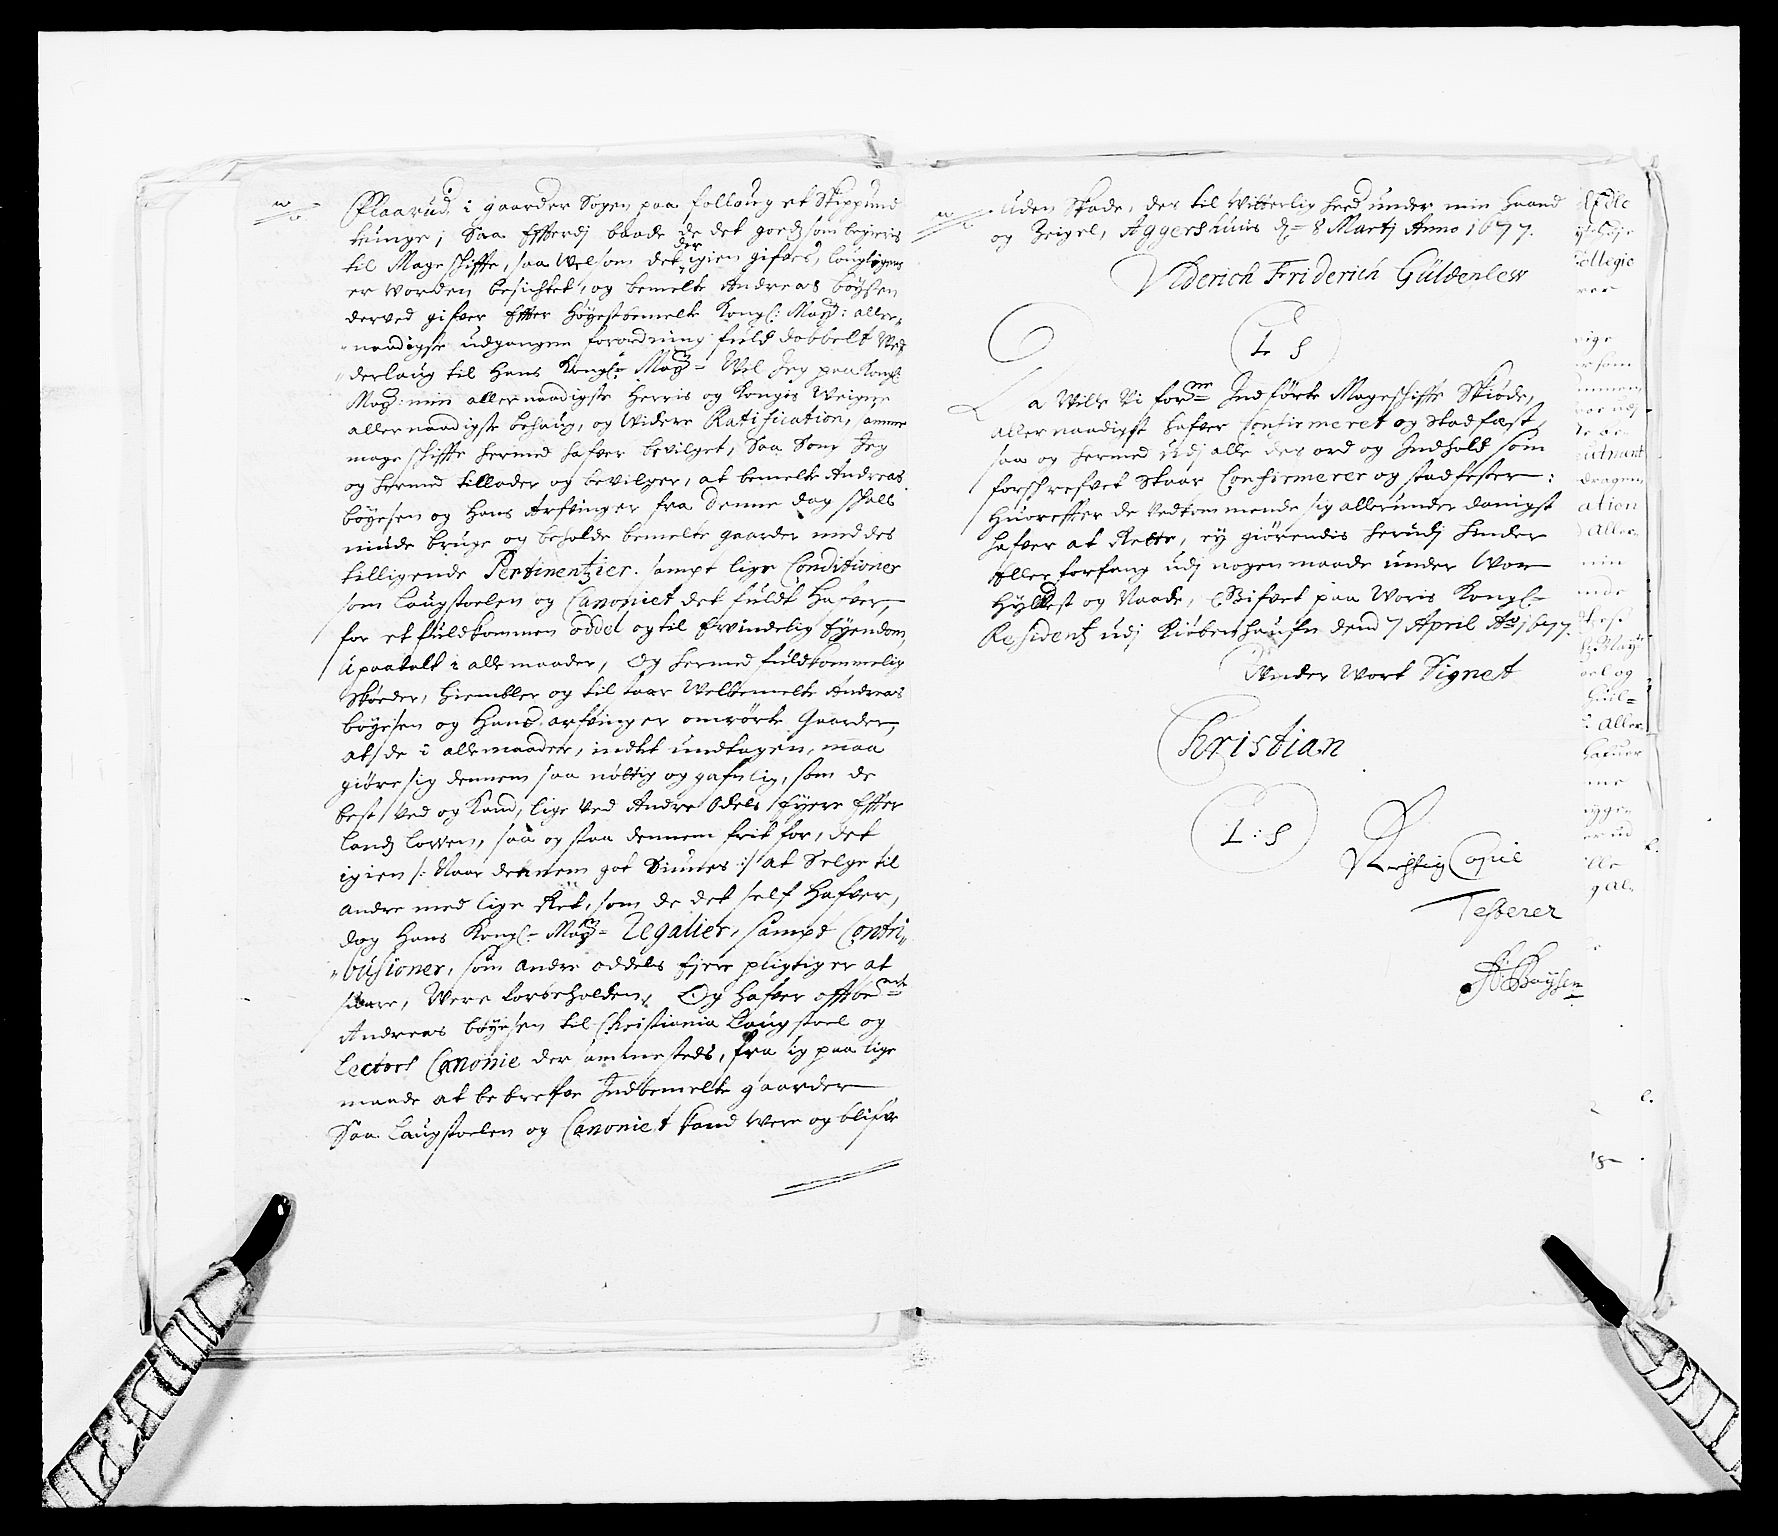 Plaarud i gaarder Sogen paa folloug et Skippund
tunge; Saa Effterdj baade de det gods som begieris
til Mageschiffte, saa Vel som det der igien gifves, lougligens
er worden besichtet, og bemelte Andreas böysen
derved gifver Effter Höystbemelte Kongl: Mayt: aller„
„naadigste udgangne forordning fuld dobbelt Ved„
„derlaug til Hans Kongl: Mayt= Vil Jeg paa Kongl:
Mayt: min allernaadigste Herris og Kongis Weigne
allernaadigste behaug, og Videre Ratification, samme
mageschiffte hermed hafver bevilget, Saa Som Jeg
og hermed tillader og bevilger, at bemelte Andreas
böyesen og Hans Arfvinger fra denne dag skall
niude bruge og beholde bemelte gaarder med des
tilligende Pertinentzier. sampt lige Conditioner
som Laugstoelen og Canoniet det fuldt Hafver,
for et fuldkommen oddel og til Ervindelig Eyendom,
Upaatalt i alle maader, Og hermed fuldkommelig
Skiøder, hiembler og til staar Velbemelte Andreas
böyesen og Hans arfvinger omrörte Gaarder,
at de i alle maader, indtet undtagen, maa
giöre sig dennem saa nöttig og gafnlig, som de
best Ved og Kand, lige Ved Andre Odels Eyere Effter
Landz Lowen, saa og staa dennem frit for, det
igien /: Naar dennem got Siunes :/ at Selge til
andre med lige Ret, som de det self Hafver,
dog Hans Kongl= Mayt= Regalier, sampt Contri„
„busioner, som andre oddels Ejere pligtig er at
svare, Were forbeholden, Og Hafver offtbemte
Andreas böyesen til Christiania Laugstoel og
Lectors Canonie der sammesteds, fra sig paa lige
maade at bebreffve Indbemelte gaarder
Saa Laugstoelen og Canoniet kand Were og blifve
uden Skade, des til Witterlig hed under min Haand
og Zeigel, Aggershuus d= 8 Martj Anno 1677.
Vlderich Friderich Güldenlew
L S
La Ville Vi forne Indförte Mageschiffte Skiöde,
allernaadigst hafver Confirmeret og Stadfæst,
saa og hermed udj alle des ord og Indhold som
forschrefvet Staar Confirmerer og stadfester:
Huoreffter de Vedkommende sig allerunderdanigst
hafver at Rette, ey giörendis herudj hinder
Eller forfang udj nogen maade under Wor
Hyldest og Naade, Gifvet paa Woris Kongl=
Residentz udj Kiöbenhaufn dend 7 April Ao 1677.
Under Wort Signet
Christian
L : S
Rigtig Copie
Testerer
ABøysen